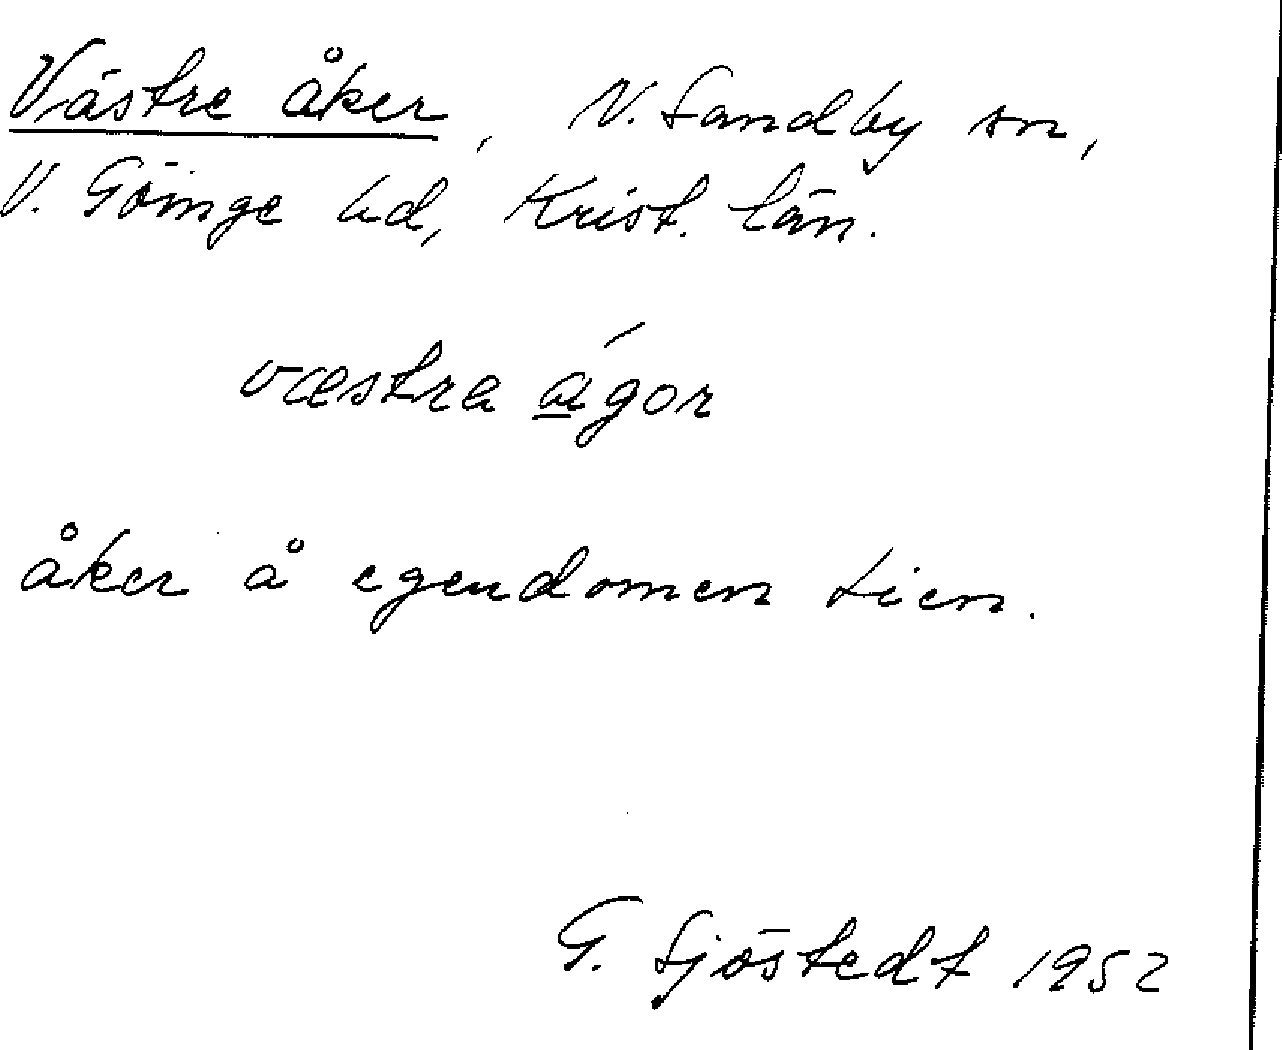 Västre åker, N. Sandby sn,
V. Göinge hd, Krist. län.
væstra ágor
åker å egendomen tien.
G. Sjöstedt 1952